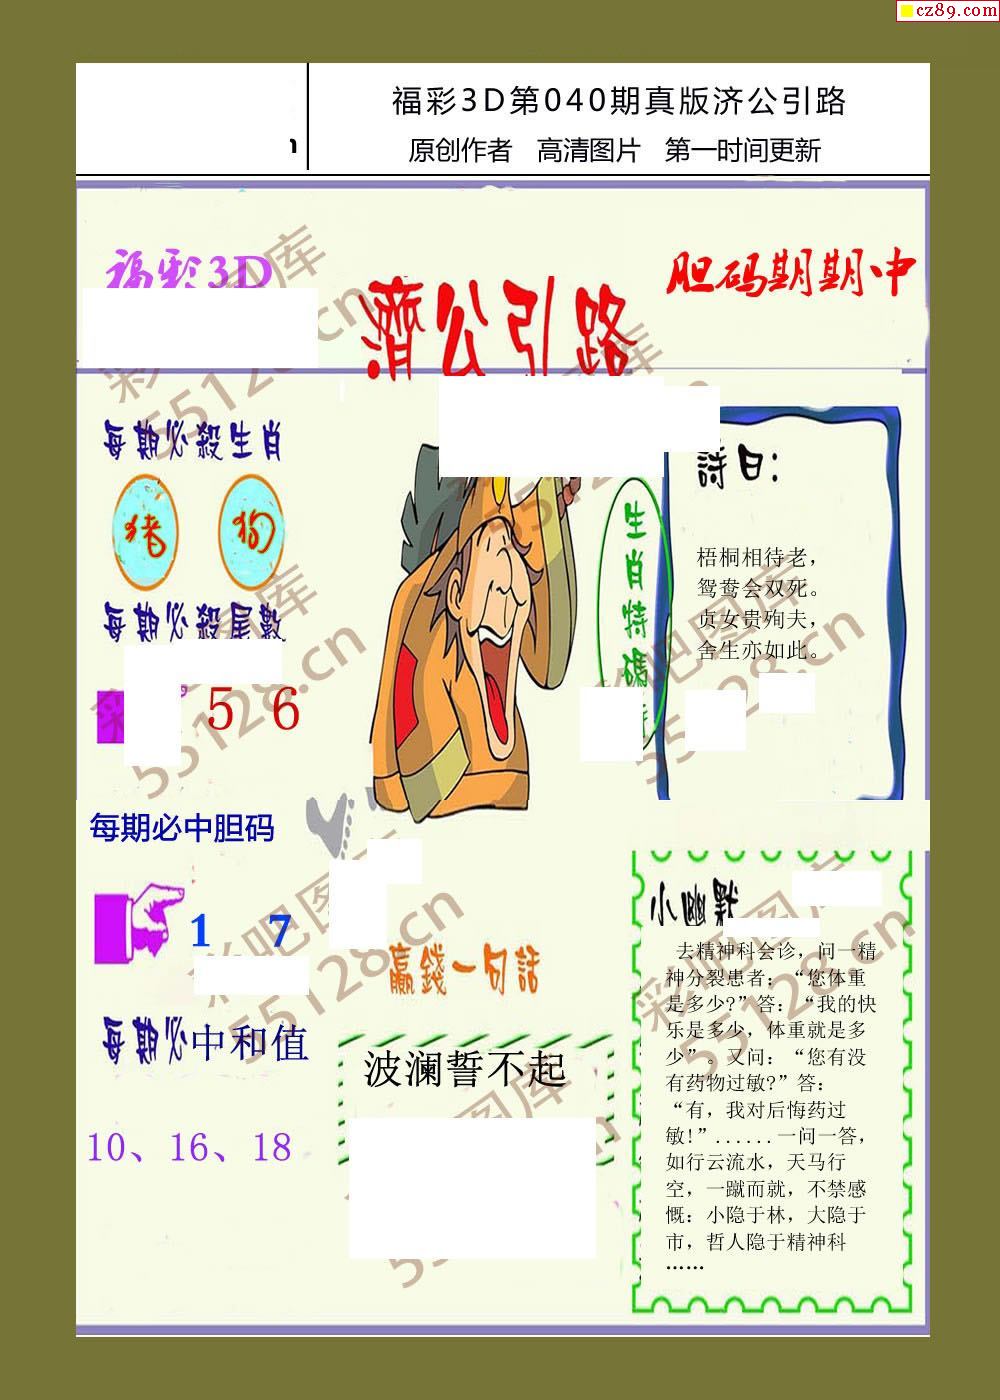 cz89.com
福彩3D第040期真版济公引路
原创作者 高清图片 第一时间更新
福彩3D
濟公引路
胆码期期中
每期必殺生肖
猪 狗
每期必殺尾數
5 6
每期必中胆码
1 7
每期必中和值
10、16、18
生肖特碼
詩曰：
梧桐相待老，
鸳鸯会双死。
贞女贵殉夫，
舍生亦如此。
赢錢一句話
波澜誓不起
小幽默
去精神科会诊，问一精
神分裂患者；“您体重
是多少?”答：“我的快
乐是多少，体重就是多
少”。又问：“您有没
有药物过敏?”答：
“有，我对后悔药过
敏!”......一问一答，
如行云流水，天马行
空，一蹴而就，不禁感
慨：小隐于林，大隐于
市，哲人隐于精神科
……
彩吧图库
55128.cn